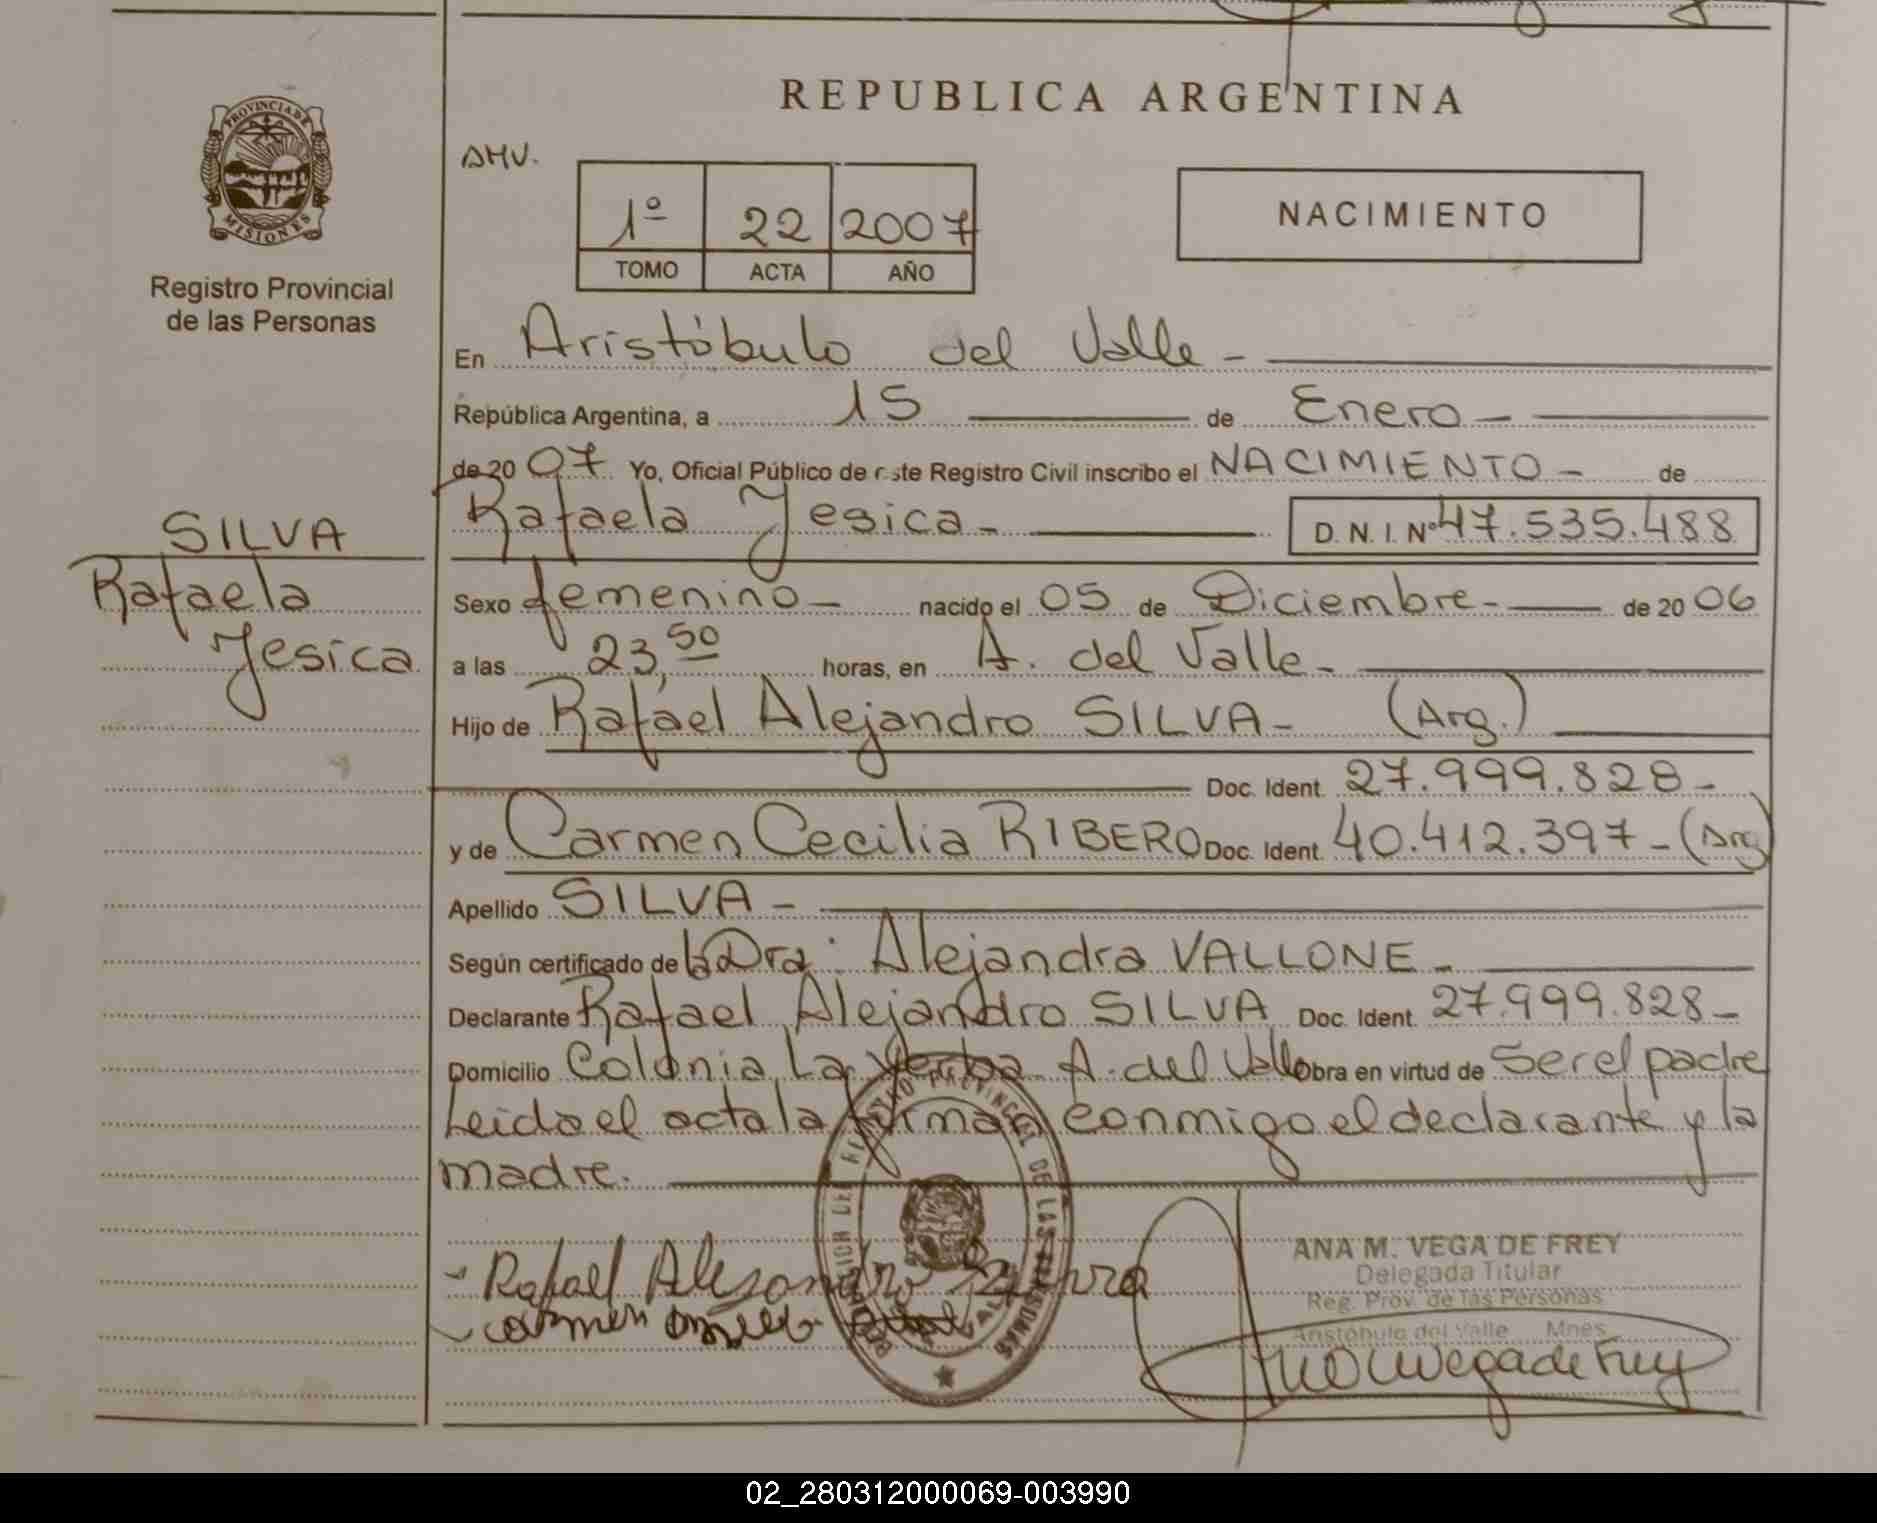 REPUBLICA ARGENTINA
PROVINCIA DE
MISIONES
Registro Provincial
de las Personas
AMV.
1º 22 2007
TOMO ACTA AÑO
NACIMIENTO
En Aristóbulo del Valle -
República Argentina, a 15 de Enero -
de 20 07 Yo, Oficial Público de este Registro Civil inscribo el NACIMIENTO - de
Rafaela Yesica - D.N.I. Nº 47.535.488
SILVA
Rafaela
Yesica
Sexo femenino - nacido el 05 de Diciembre - de 20 06
a las 23,50 horas, en A. del Valle -
Hijo de Rafael Alejandro SILVA - (Arg.)
Doc. Ident. 27.999.828 -
y de Carmen Cecilia RIBERO Doc. Ident. 40.412.397 - (Arg)
Apellido SILVA -
Según certificado de la Dra: Alejandra VALLONE -
Declarante Rafael Alejandro SILVA Doc. Ident. 27.999.828 -
Domicilio Colonia La Yerba A. del Valle Obra en virtud de ser el padre
Leida el acta la firman conmigo el declarante y la
madre.
PROVINCIAL DE LAS PERSONAS
- Rafael
carmen
ANA M. VEGA DE FREY
Delegada Titular
Reg. Prov. de las Personas
Aristóbulo del Valle Mnes
Vega de Frey
02_280312000069-003990